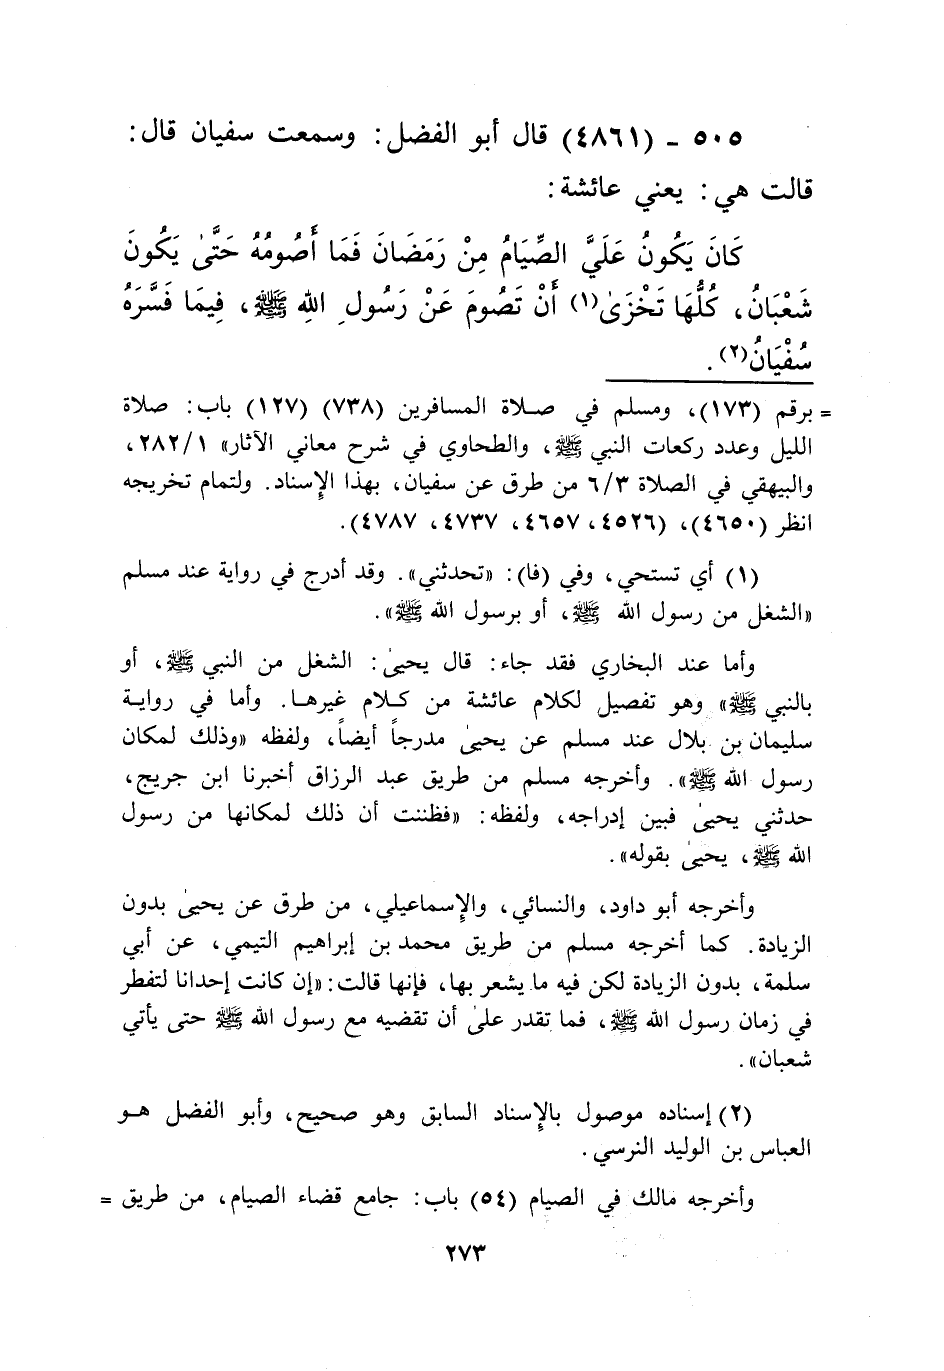 ٥٠٥ - (٤٨٦١) قال أبو الفضل: وسمعت سفيان قال:
قالت هي: يعني عائشة:
كَانَ يَكُونُ عَلَيَّ الصِّيَامُ مِنْ رَمَضَانَ فَمَا أَصُومُهُ حَتَّىٰ يَكُونَ
شَعْبَانُ، كُلُّهَا تَخْزَىٰ(١) أَنْ تَصُومَ عَنْ رَسُولِ اللهِ ﷺ، فِيمَا فَسَّرَهُ
سُفْيَانُ(٢).
= برقم (١٧٣)، ومسلم في صلاة المسافرين (٧٣٨) (١٢٧) باب: صلاة
الليل وعدد ركعات النبي ﷺ، والطحاوي في شرح معاني الآثار» ٢٨٢/١،
والبيهقي في الصلاة ٦/٣ من طرق عن سفيان، بهذا الإسناد. ولتمام تخريجه
انظر (٤٦٥٠)، (٤٥٢٦، ٤٦٥٧، ٤٧٣٧، ٤٧٨٧).
(١) أي تستحي، وفي (فا): «تحدثني». وقد أدرج في رواية عند مسلم
«الشغل من رسول الله ﷺ، أو برسول الله ﷺ».
وأما عند البخاري فقد جاء: قال يحيىٰ: الشغل من النبي ﷺ، أو
بالنبي ﷺ» وهو تفصيل لكلام عائشة من كلام غيرها. وأما في رواية
سليمان بن بلال عند مسلم عن يحيىٰ مدرجاً أيضاً، ولفظه «وذلك لمكان
رسول الله ﷺ». وأخرجه مسلم من طريق عبد الرزاق أخبرنا ابن جريج،
حدثني يحيىٰ فبين إدراجه، ولفظه: «فظننت أن ذلك لمكانها من رسول
الله ﷺ، يحيىٰ بقوله».
وأخرجه أبو داود، والنسائي، والإسماعيلي، من طرق عن يحيىٰ بدون
الزيادة. كما أخرجه مسلم من طريق محمد بن إبراهيم التيمي، عن أبي
سلمة، بدون الزيادة لكن فيه ما يشعر بها، فإنها قالت: «إن كانت إحدانا لتفطر
في زمان رسول الله ﷺ، فما تقدر علىٰ أن تقضيه مع رسول الله ﷺ حتى يأتي
شعبان».
(٢) إسناده موصول بالإسناد السابق وهو صحيح، وأبو الفضل هو
العباس بن الوليد النرسي.
وأخرجه مالك في الصيام (٥٤) باب: جامع قضاء الصيام، من طريق =
٢٧٣